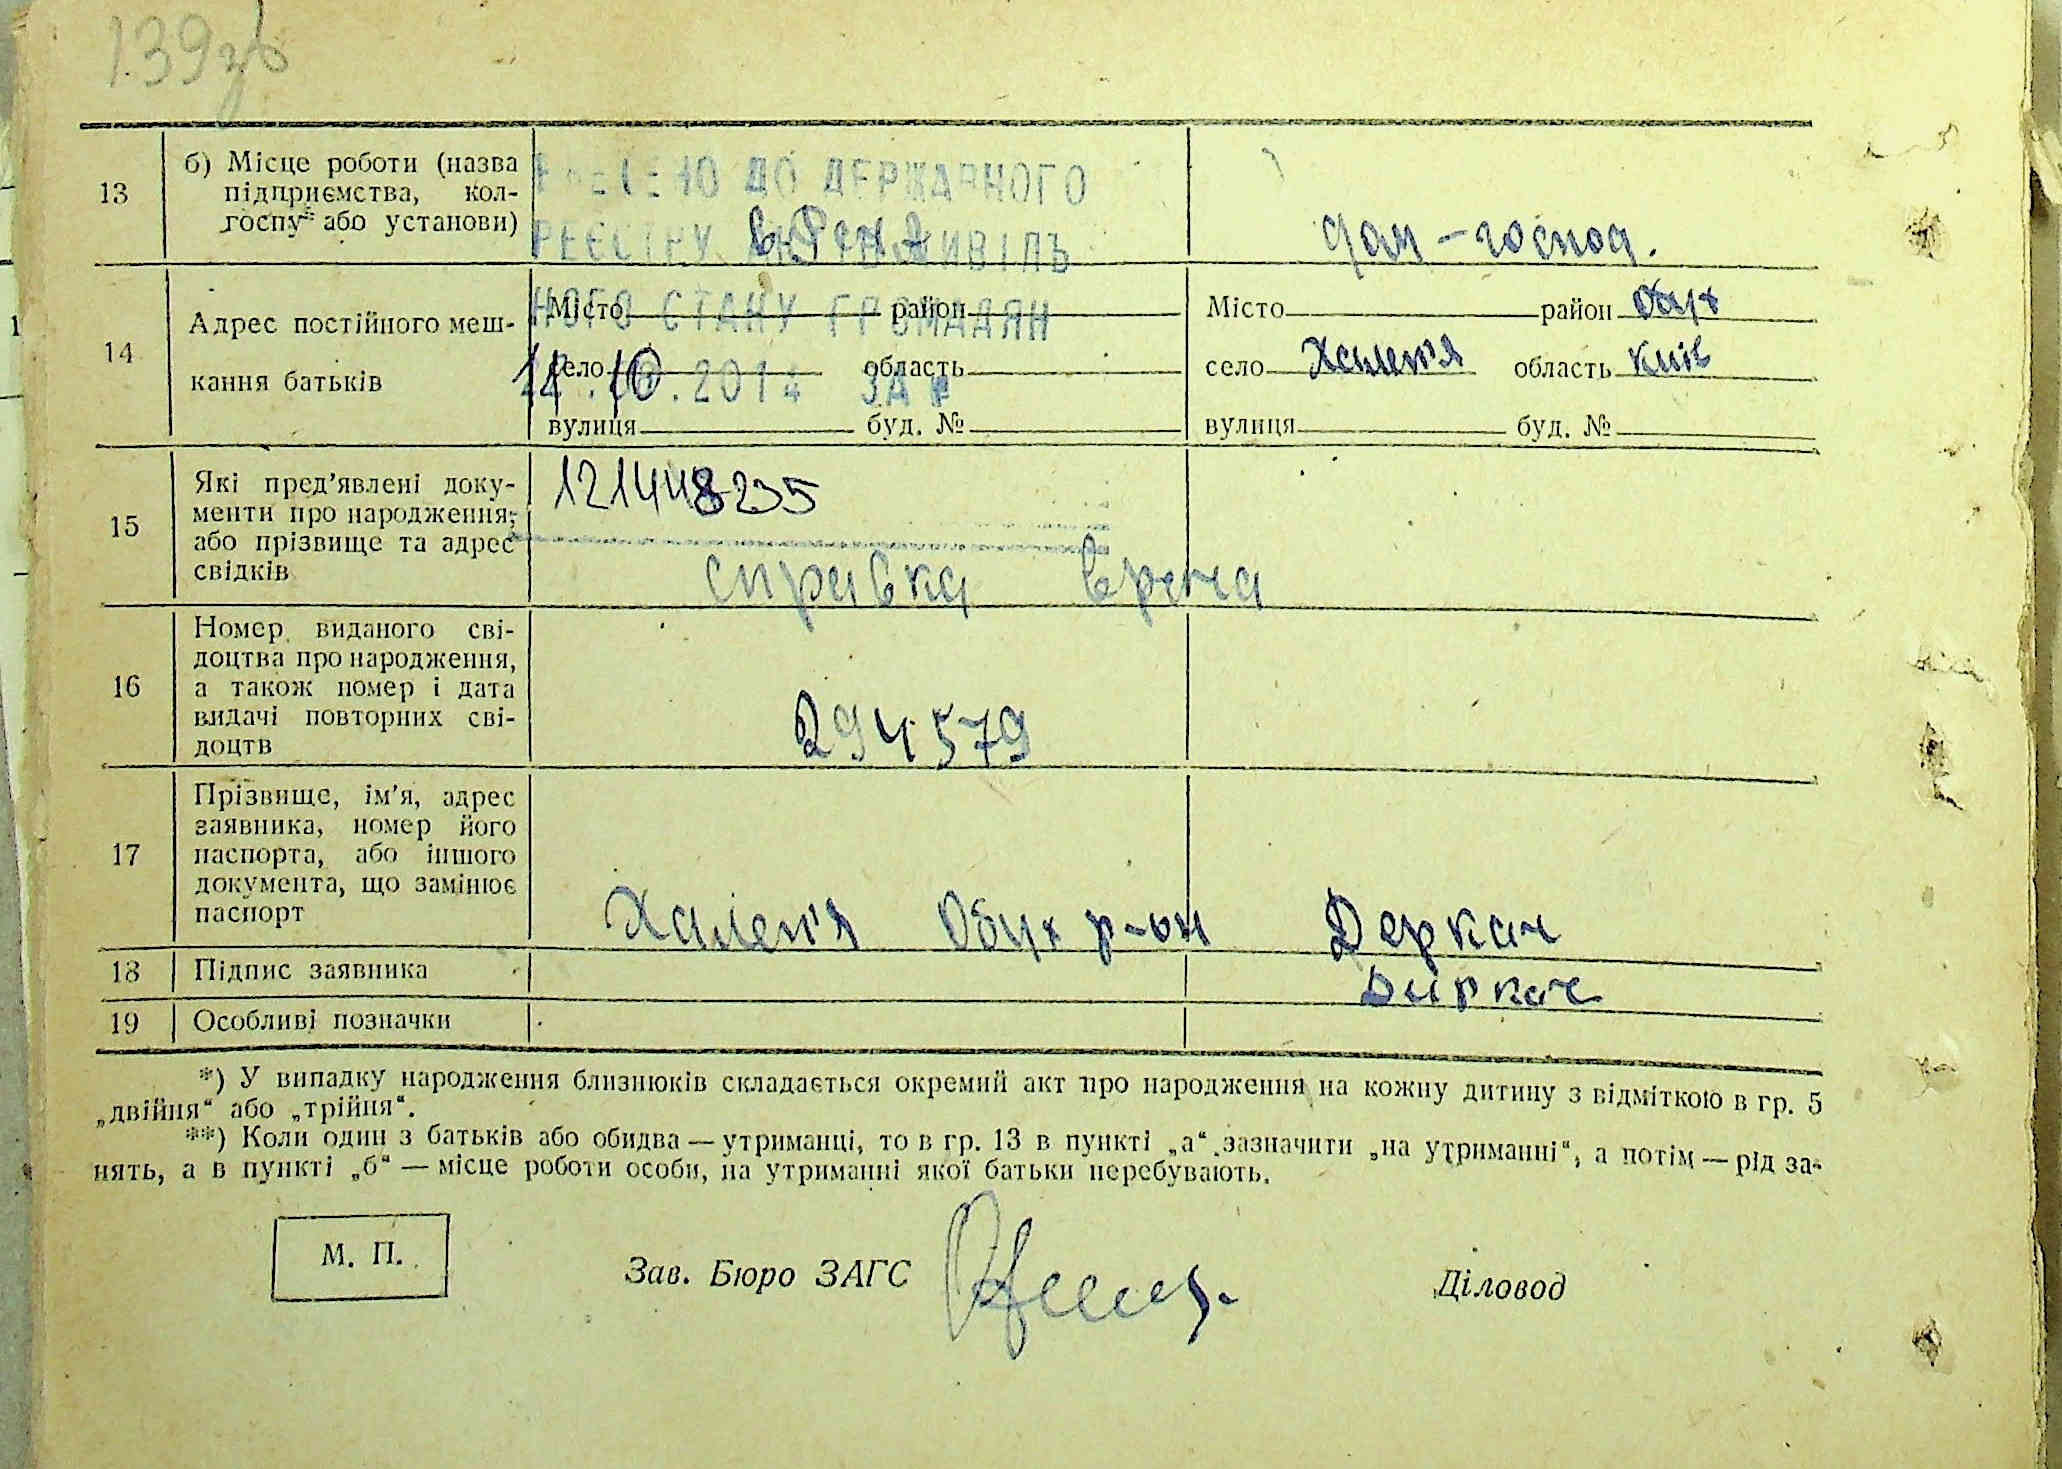 139 зв
13 б) Місце роботи (назва
підприємства, кол-
госпу* або установи)
ВНЕСЕНО ДО ДЕРЖАВНОГО
РЕЄСТРУ АКТІВ ЦИВІЛЬ
НОГО СТАНУ ГРОМАДЯН
14.10.2014 ЗА №
121448235
дом-господ.
14 Адрес постійного меш-
кання батьків
Місто район
село область
вулиця буд. №
Місто район Обух
село Халеп'я область Київ
вулиця буд. №
15 Які пред'явлені доку-
менти про народження,
або прізвище та адрес
свідків
справка врача
16 Номер виданого сві-
доцтва про народження,
а також номер і дата
видачі повторних сві-
доцтв
294579
17 Прізвище, ім'я, адрес
заявника, номер його
паспорта, або іншого
документа, що замінює
паспорт
Халеп'я Обух р-он Деркач
18 Підпис заявника Диркач
19 Особливі позначки
*) У випадку народження близнюків складається окремий акт про народження на кожну дитину з відміткою в гр. 5
„двійня“ або „трійня“.
**) Коли один з батьків або обидва — утриманці, то в гр. 13 в пункті „а“ зазначити „на утриманні“, а потім — рід за-
нять, а в пункті „б“ — місце роботи особи, на утриманні якої батьки перебувають.
М. П. Зав. Бюро ЗАГС Діловод